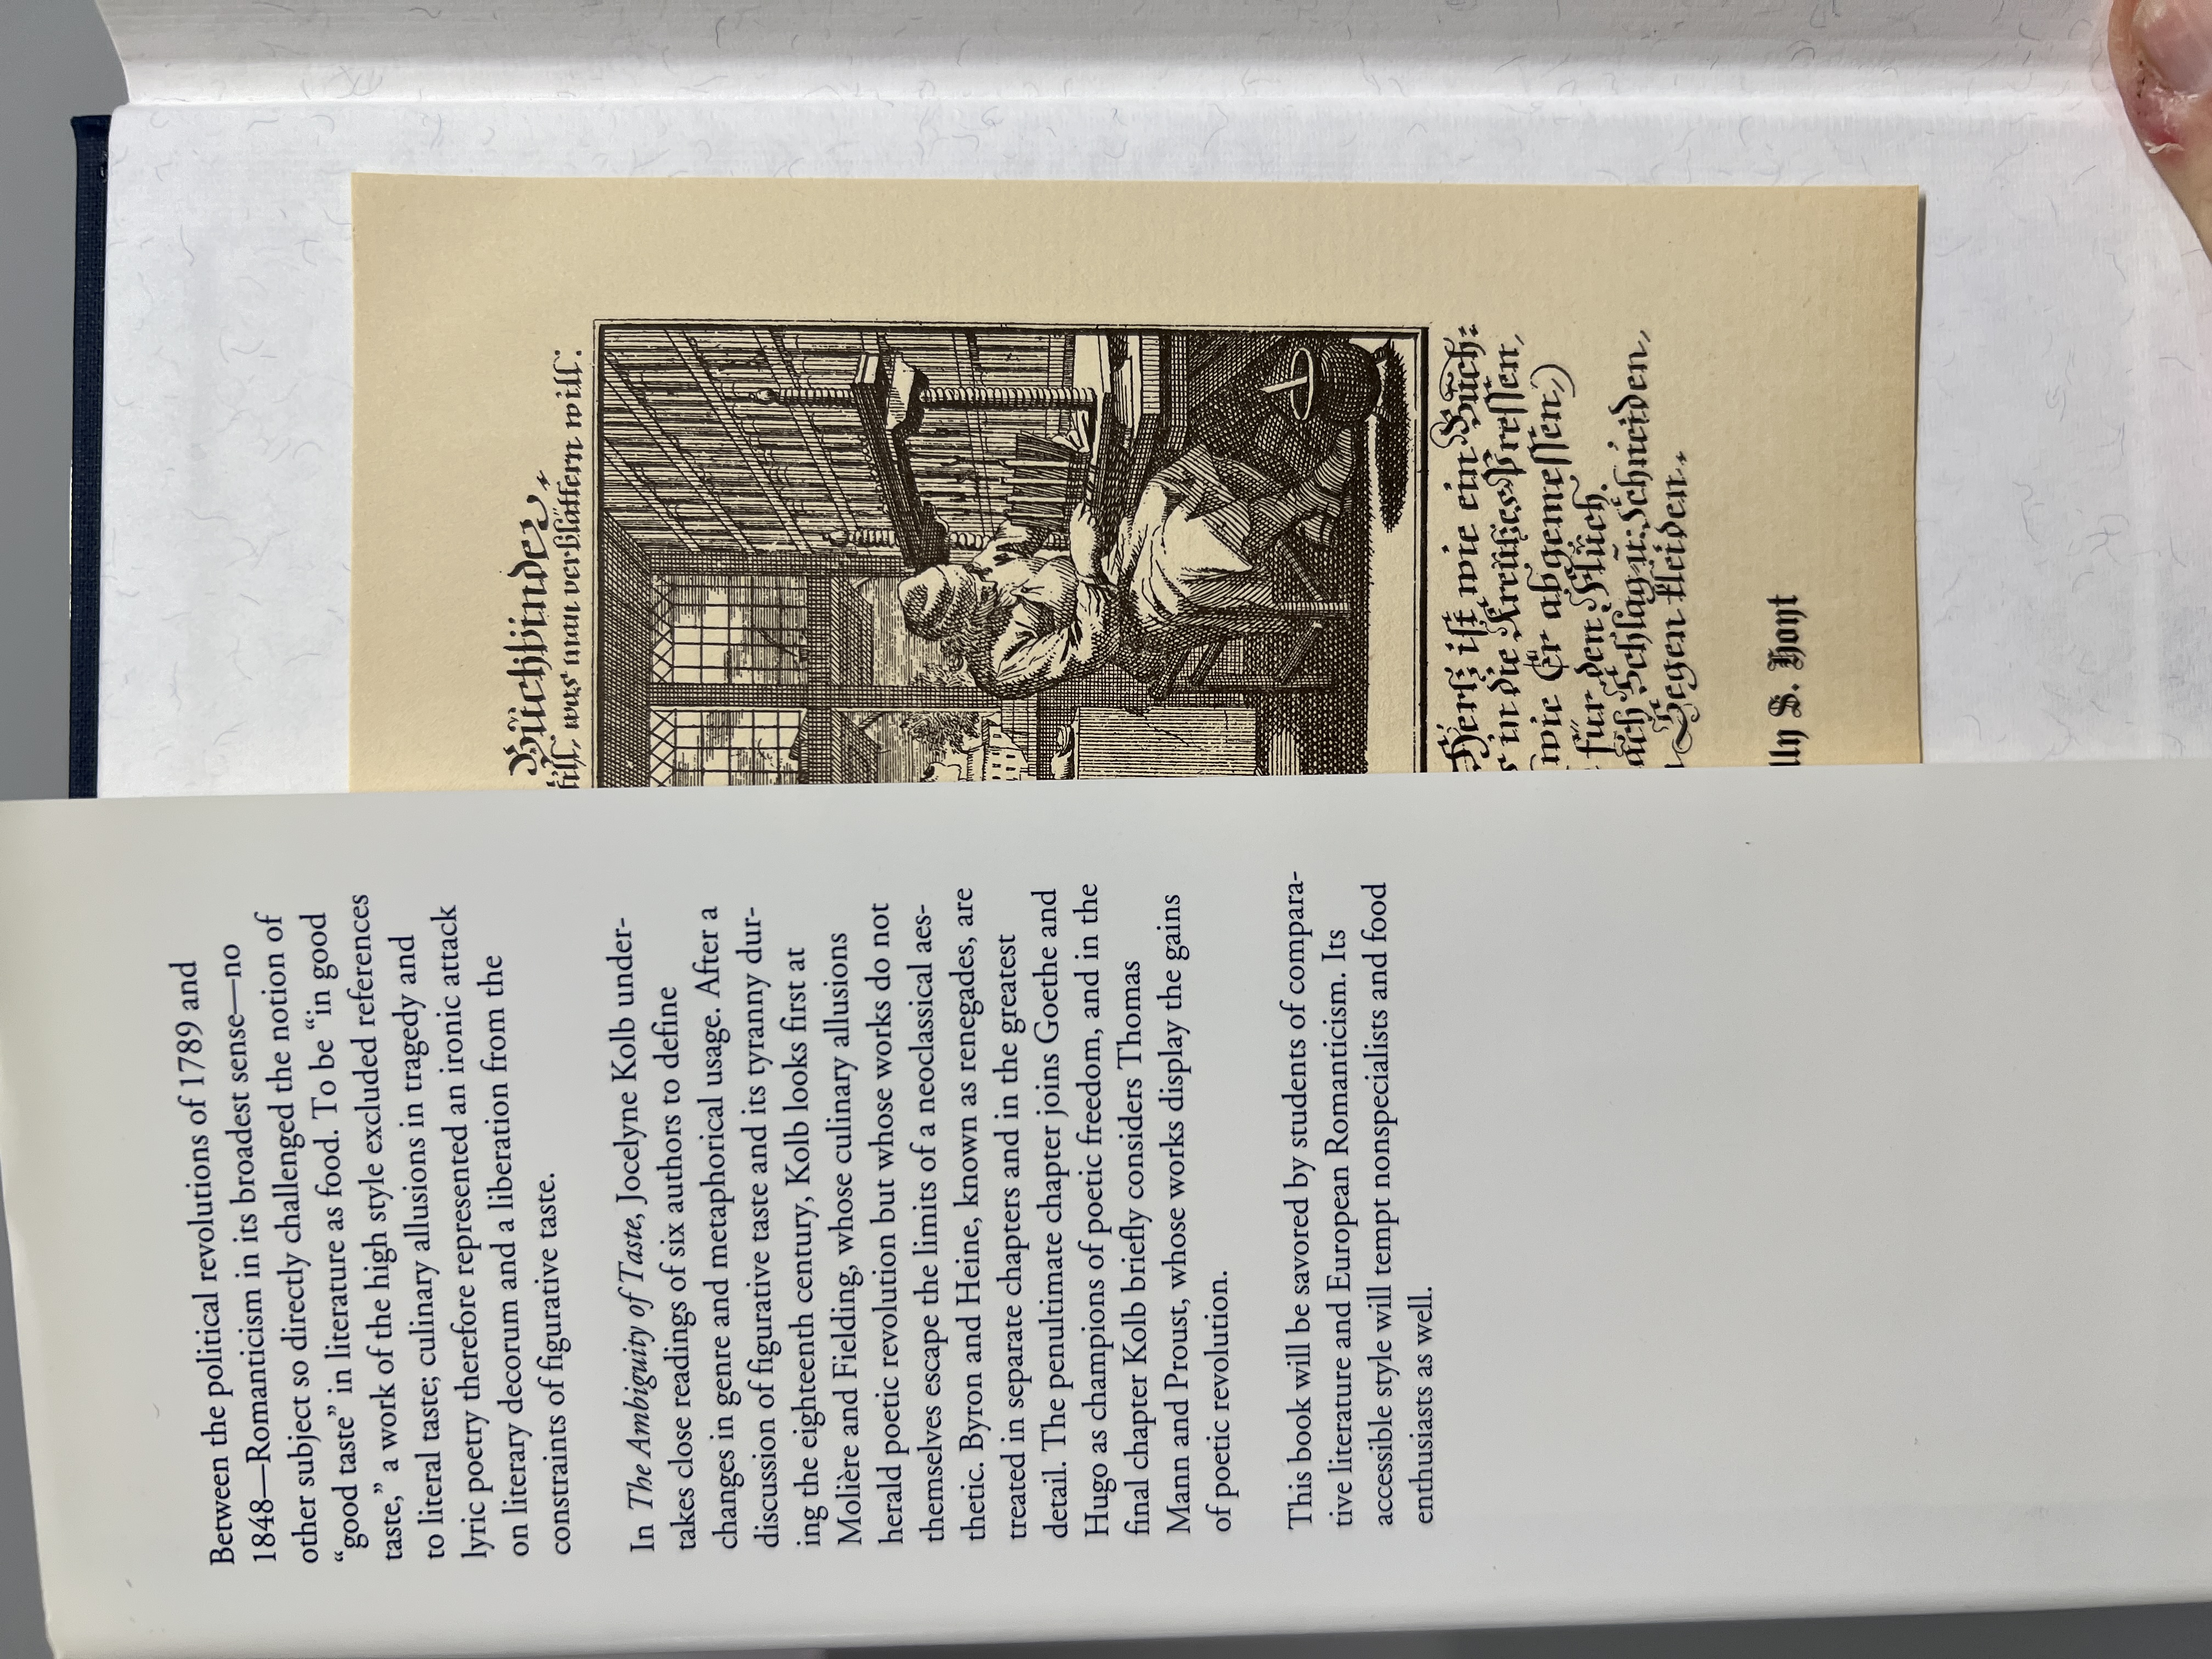 Between the political revolutions of 1789 and
1848—Romanticism in its broadest sense—no
other subject so directly challenged the notion of
“good taste” in literature as food. To be “in good
taste,” a work of the high style excluded references
to literal taste; culinary allusions in tragedy and
lyric poetry therefore represented an ironic attack
on literary decorum and a liberation from the
constraints of figurative taste.
In The Ambiguity of Taste, Jocelyne Kolb under-
takes close readings of six authors to define
changes in genre and metaphorical usage. After a
discussion of figurative taste and its tyranny dur-
ing the eighteenth century, Kolb looks first at
Molière and Fielding, whose culinary allusions
herald poetic revolution but whose works do not
themselves escape the limits of a neoclassical aes-
thetic. Byron and Heine, known as renegades, are
treated in separate chapters and in the greatest
detail. The penultimate chapter joins Goethe and
Hugo as champions of poetic freedom, and in the
final chapter Kolb briefly considers Thomas
Mann and Proust, whose works display the gains
of poetic revolution.
This book will be savored by students of compara-
tive literature and European Romanticism. Its
accessible style will tempt nonspecialists and food
enthusiasts as well.
Büchbinder.
still, was man verblättern will.
Hertz ist wie ein Büch:
in die Kreützes Pressen,
wie Er abgemessen,)
für den Flüch.
Schlag ü: Schneiden,
Segen kleiden.
lly S. Hoyt